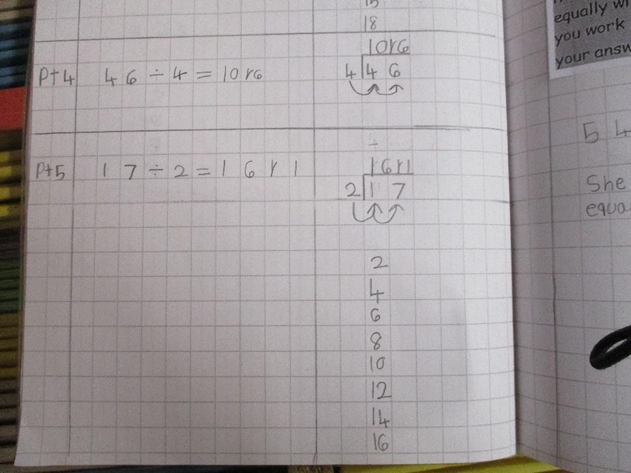 18
10r6
Pt4 46 ÷ 4 = 10r6 4 46
Pt5 17 ÷ 2 = 16r1 16r1
2 17
2
4
6
8
10
12
14
16
equally wi
you work
your answ
54
She
equa